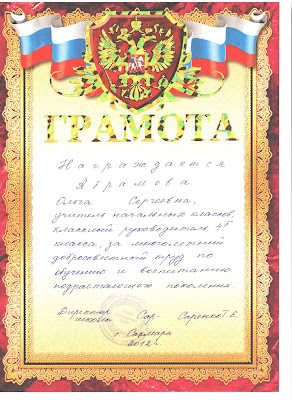 ГРАМОТА
Награждается
Абрамова
Ольга Сергеевна,
учитель начальных классов,
классный руководитель 4б
класса, за многолетний
добросовестный труд по
обучению и воспитанию
подрастающего поколения
Директор
школы Саренко Т. Е.
с.
2012 г.